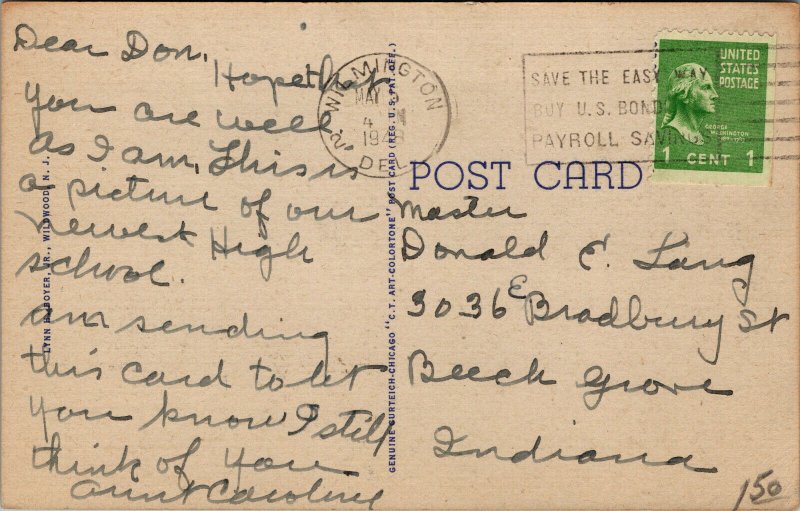 Dear Don,
Hope that
you are well
as I am. This is
a picture of our
newest High
school.
am sending
this card to let
you know I still
think of you
Aunt Caroline
LYNN H. BOYER, JR., WILDWOOD, N. J.
GENUINE CURTEICH-CHICAGO "C.T. ART-COLORTONE" POST CARD (REG. U.S. PAT. OFF.)
WILMINGTON
MAY
4
DEL
2
SAVE THE EASY WAY
BUY U.S. BONDS
PAYROLL SAVINGS
UNITED
STATES
POSTAGE
GEORGE
WASHINGTON
1 CENT 1
POST CARD
Master
Donald E. Lang
3036 E Bradbury St
Beech Grove
Indiana
150